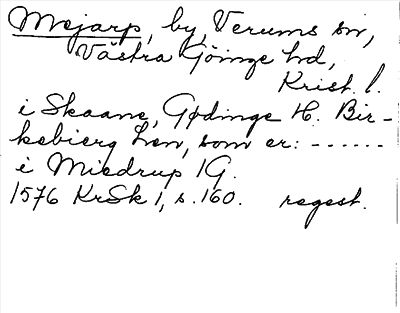 Mejarp, by, Verums sn,
Västra Göinge hd,
Krist. l.
i Skaane, Gødinge H. Bir-
kebierg Len, som er: ------
i Miedrup 1G.
1576 KrSk 1, s. 160. regest.